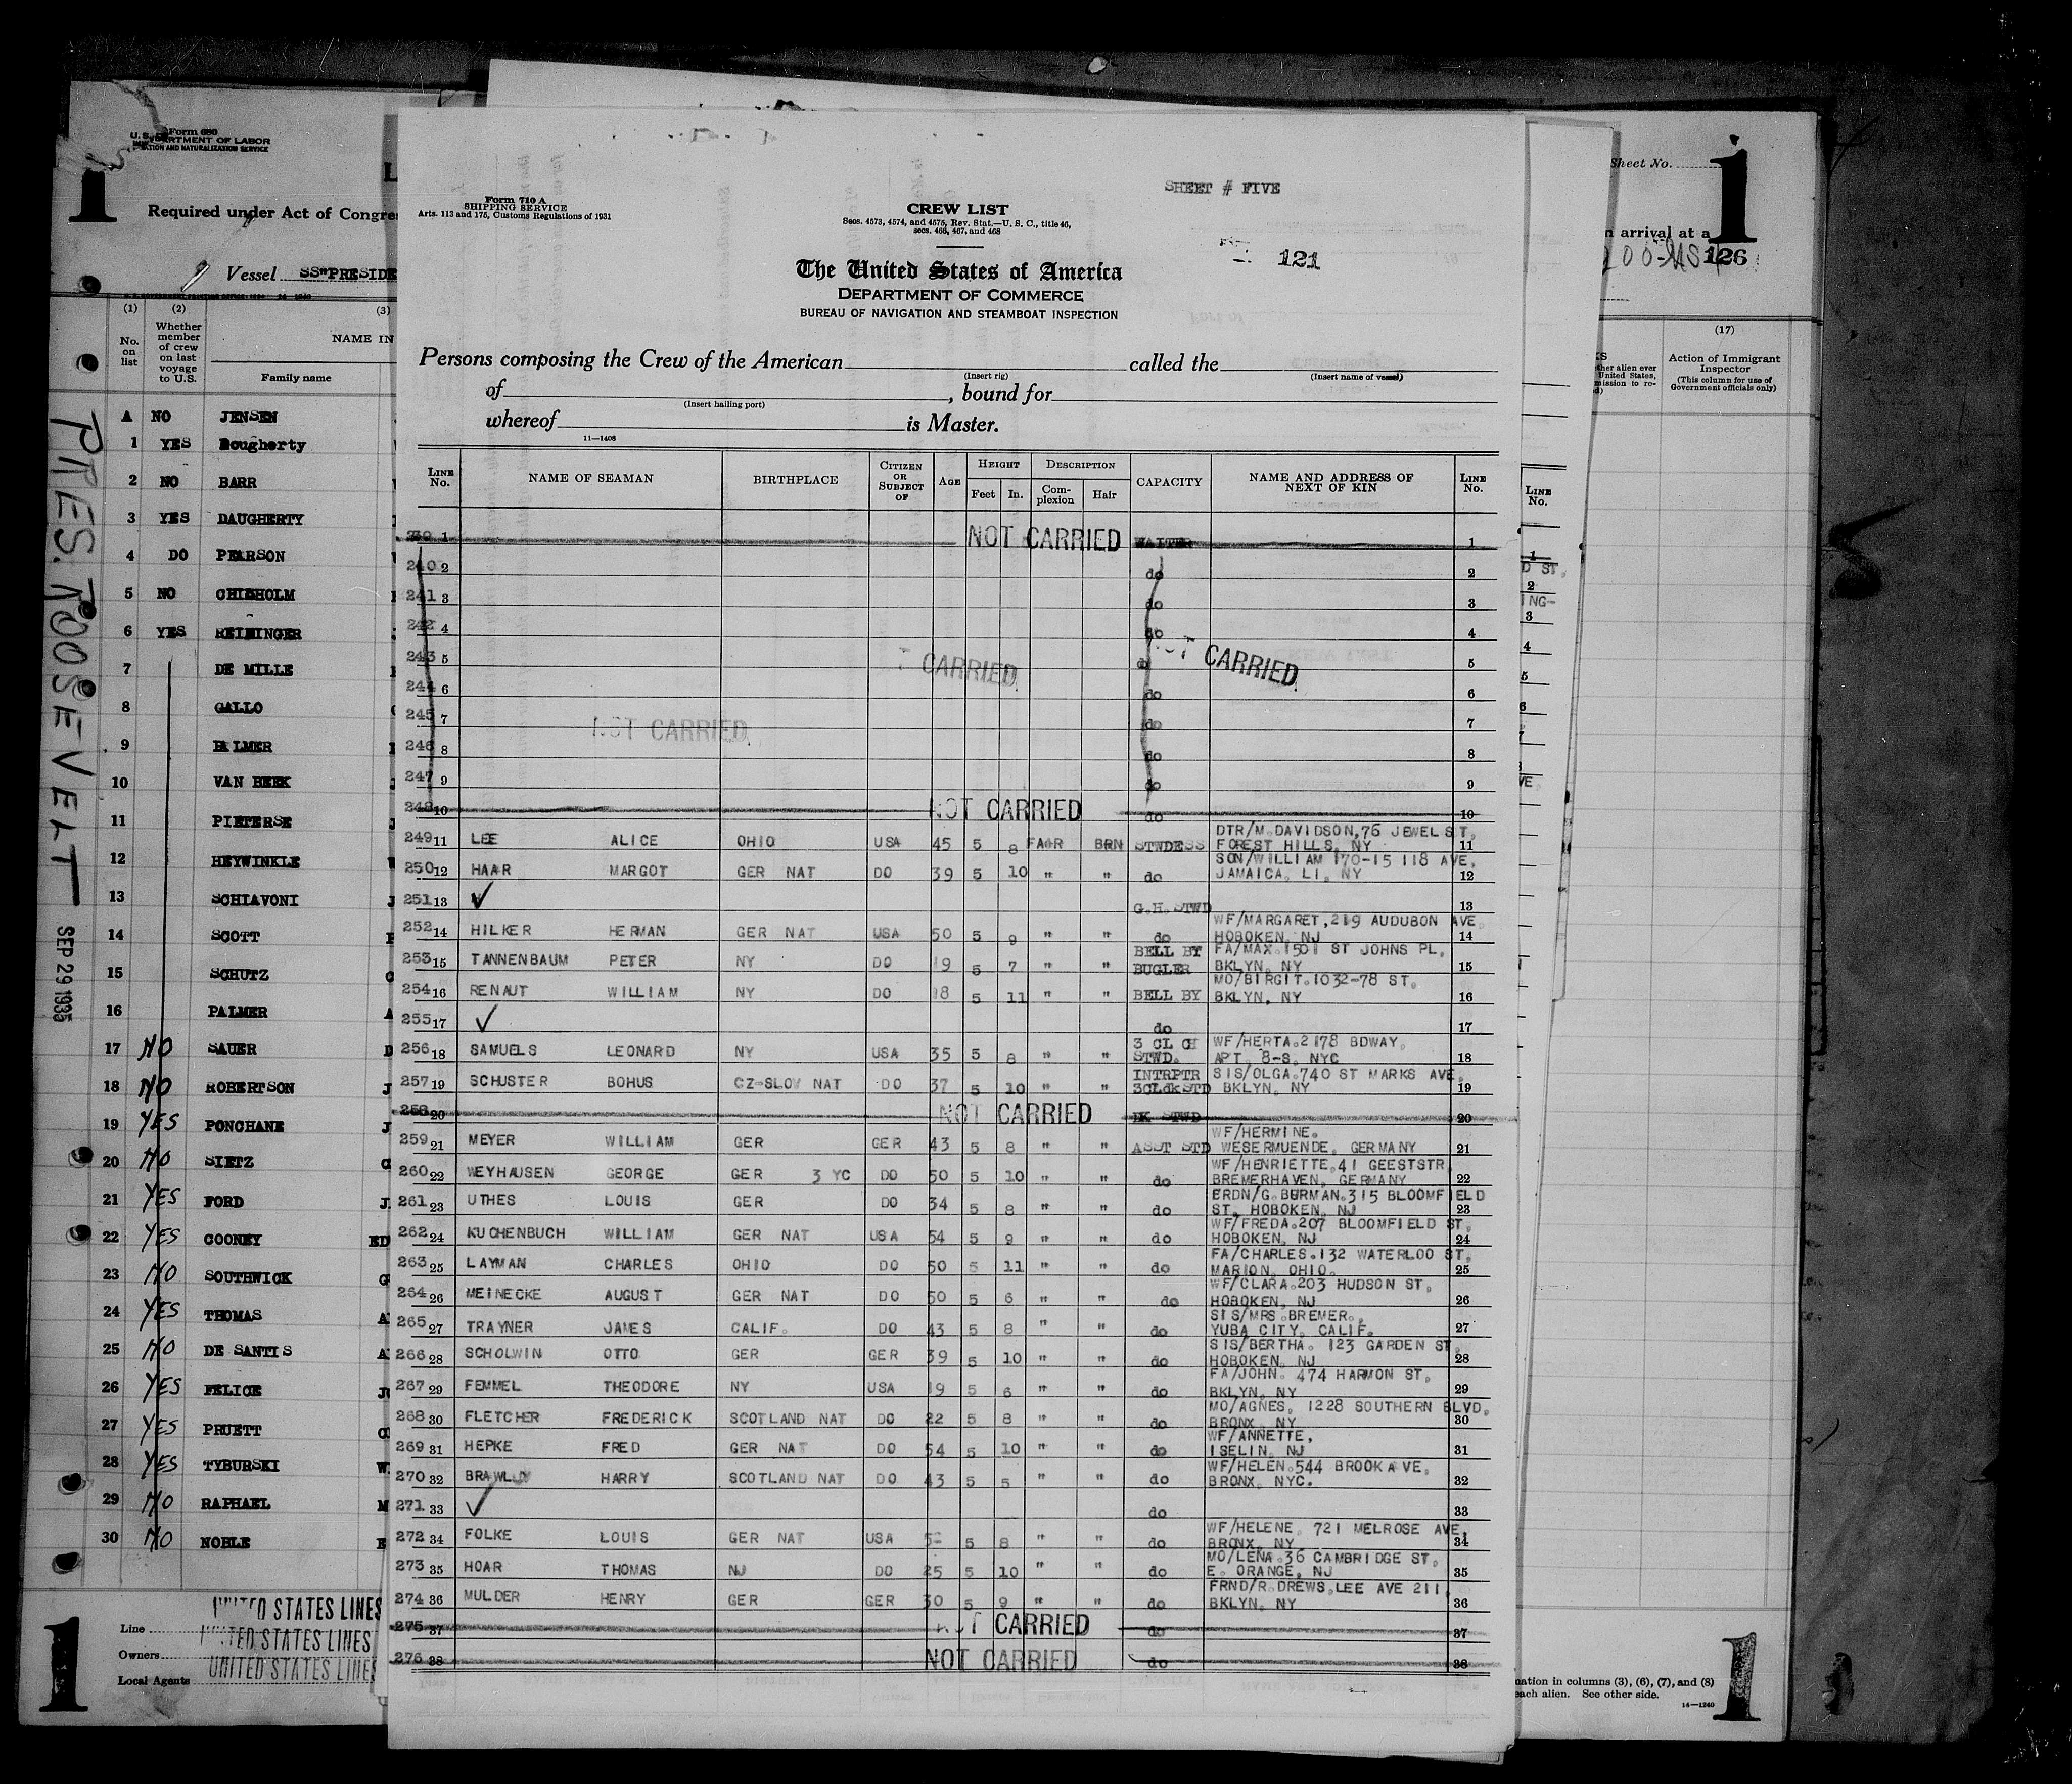 Form 680
U. S. DEPARTMENT OF LABOR
IMMIGRATION AND NATURALIZATION SERVICE
1
Required under Act of Congre
Vessel SS"PRESIDE
(1) (2) (3)
No. on list
Whether member of crew on last voyage to U.S.
NAME IN
Family name
A NO JENSEN
1 YES Dougherty
2 NO BARR
3 YES DAUGHERTY
4 DO PEARSON
5 NO CHISHOLM
6 YES REININGER
7 DE MILLE
8 GALLO
9 PALMER
10 VAN BEEK
11 PIETERSE
12 HEYWINKLE
13 SCHIAVONI
14 SCOTT
15 SCHUTZ
16 PALMER
17 NO SAUER
18 NO ROBERTSON
19 YES PONCHANE
20 NO SIETZ
21 YES FORD
22 YES COONEY ED
23 NO SOUTHWICK
24 YES THOMAS
25 NO DE SANTIS
26 YES FELICE
27 YES PRUETT
28 YES TYBURSKI
29 NO RAPHAEL
30 NO NOBLE
PRES. ROOSEVELT SEP 29 1935
1
Line UNITED STATES LINES
Owners UNITED STATES LINES
Local Agents UNITED STATES LINES
SHEET # FIVE
Form 710 A
SHIPPING SERVICE
Arts. 113 and 175, Customs Regulations of 1931
CREW LIST
Secs. 4573, 4574, and 4575, Rev. Stat.—U. S. C., title 46,
secs. 466, 467, and 468
121
The United States of America
DEPARTMENT OF COMMERCE
BUREAU OF NAVIGATION AND STEAMBOAT INSPECTION
Persons composing the Crew of the American called the
(Insert rig) (Insert name of vessel)
of , bound for
(Insert hailing port)
whereof is Master.
11—1408
LINE No. NAME OF SEAMAN BIRTHPLACE CITIZEN OR SUBJECT OF AGE HEIGHT Feet In. DESCRIPTION Complexion Hair CAPACITY NAME AND ADDRESS OF NEXT OF KIN LINE No.
1 NOT CARRIED WAITER 1
240 2 do 2
241 3 do 3
242 4 do 4
243 5 CARRIED NOT CARRIED 5
244 6 do 6
245 7 NOT CARRIED do 7
246 8 do 8
247 9 do 9
248 10 NOT CARRIED do 10
249 11 LEE ALICE OHIO USA 45 5 8 FAIR BRN STWDESS DTR/M. DAVIDSON,76 JEWEL ST, FOREST HILLS, NY 11
250 12 HAAR MARGOT GER NAT DO 39 5 10 " " do SON/WILLIAM 170-15 118 AVE, JAMAICA, LI, NY 12
251 13 ✓ G.H. STWD 13
252 14 HILKER HERMAN GER NAT USA 50 5 9 " " do WF/MARGARET,219 AUDUBON AVE HOBOKEN, NJ 14
253 15 TANNENBAUM PETER NY DO 19 5 7 " " BELL BY BUGLER FA/MAX.1501 ST JOHNS PL, BKLYN, NY 15
254 16 RENAUT WILLIAM NY DO 18 5 11 " " BELL BY MO/BIRGIT.1032-78 ST, BKLYN, NY 16
255 17 ✓ do 17
256 18 SAMUELS LEONARD NY USA 35 5 8 " " 3 CL CH STWD. WF/HERTA.2178 BDWAY, APT 8-S, NYC 18
257 19 SCHUSTER BOHUS CZ-SLOV NAT DO 37 5 10 " " INTRPTR 3CLdkSTD SIS/OLGA.740 ST MARKS AVE, BKLYN, NY 19
258 20 NOT CARRIED DK STWD 20
259 21 MEYER WILLIAM GER GER 43 5 8 " " ASST STD WF/HERMINE. WESERMUENDE, GERMANY 21
260 22 WEYHAUSEN GEORGE GER 3 YC DO 50 5 10 " " do WF/HENRIETTE,41 GEESTSTR, BREMERHAVEN, GERMANY 22
261 23 UTHES LOUIS GER DO 34 5 8 " " do /G. BURMAN.315 BLOOMFIELD ST, HOBOKEN, NJ 23
262 24 KUCHENBUCH WILLIAM GER NAT USA 54 5 9 " " do WF/FREDA.207 BLOOMFIELD ST, HOBOKEN, NJ 24
263 25 LAYMAN CHARLES OHIO DO 50 5 11 " " do FA/CHARLES.132 WATERLOO ST, MARION, OHIO. 25
264 26 MEINECKE AUGUST GER NAT DO 50 5 6 " " do WF/CLARA.203 HUDSON ST, HOBOKEN, NJ 26
265 27 TRAYNER JAMES CALIF. DO 43 5 8 " " do SIS/MRS.BREMER., YUBA CITY, CALIF. 27
266 28 SCHOLWIN OTTO GER GER 39 5 10 " " do SIS/BERTHA. 123 GARDEN ST, HOBOKEN, NJ 28
267 29 FEMMEL THEODORE NY USA 19 5 6 " " do FA/JOHN. 474 HARMON ST, BKLYN, NY 29
268 30 FLETCHER FREDERICK SCOTLAND NAT DO 22 5 8 " " do MO/AGNES, 1228 SOUTHERN BLVD, BRONX, NY 30
269 31 HEPKE FRED GER NAT DO 54 5 10 " " do WF/ANNETTE, ISELIN, NJ 31
270 32 HARRY SCOTLAND NAT DO 43 5 5 " " do WF/HELEN.544 BROOK AVE, BRONX, NYC. 32
271 33 ✓ do 33
272 34 FOLKE LOUIS GER NAT USA 5 8 " " do WF/HELENE. 721 MELROSE AVE, BRONX, NY 34
273 35 HOAR THOMAS NJ DO 25 5 10 " " do MO/LENA.36 CAMBRIDGE ST, E. ORANGE, NJ 35
274 36 MULDER HENRY GER GER 30 5 9 " " do FRND/R.DREWS,LEE AVE 211, BKLYN, NY 36
275 37 NOT CARRIED do 37
276 38 NOT CARRIED do 38
Sheet No.
1
n arrival at a
126
(17)
Action of Immigrant Inspector
(This column for use of Government officials only)
ther alien ever
United States,
mission to re-
LINE No.
1
D ST,
2
ING-
3
4
5
6
VE,
mation in columns (3), (6), (7), and (8)
each alien. See other side.
14—1240
1